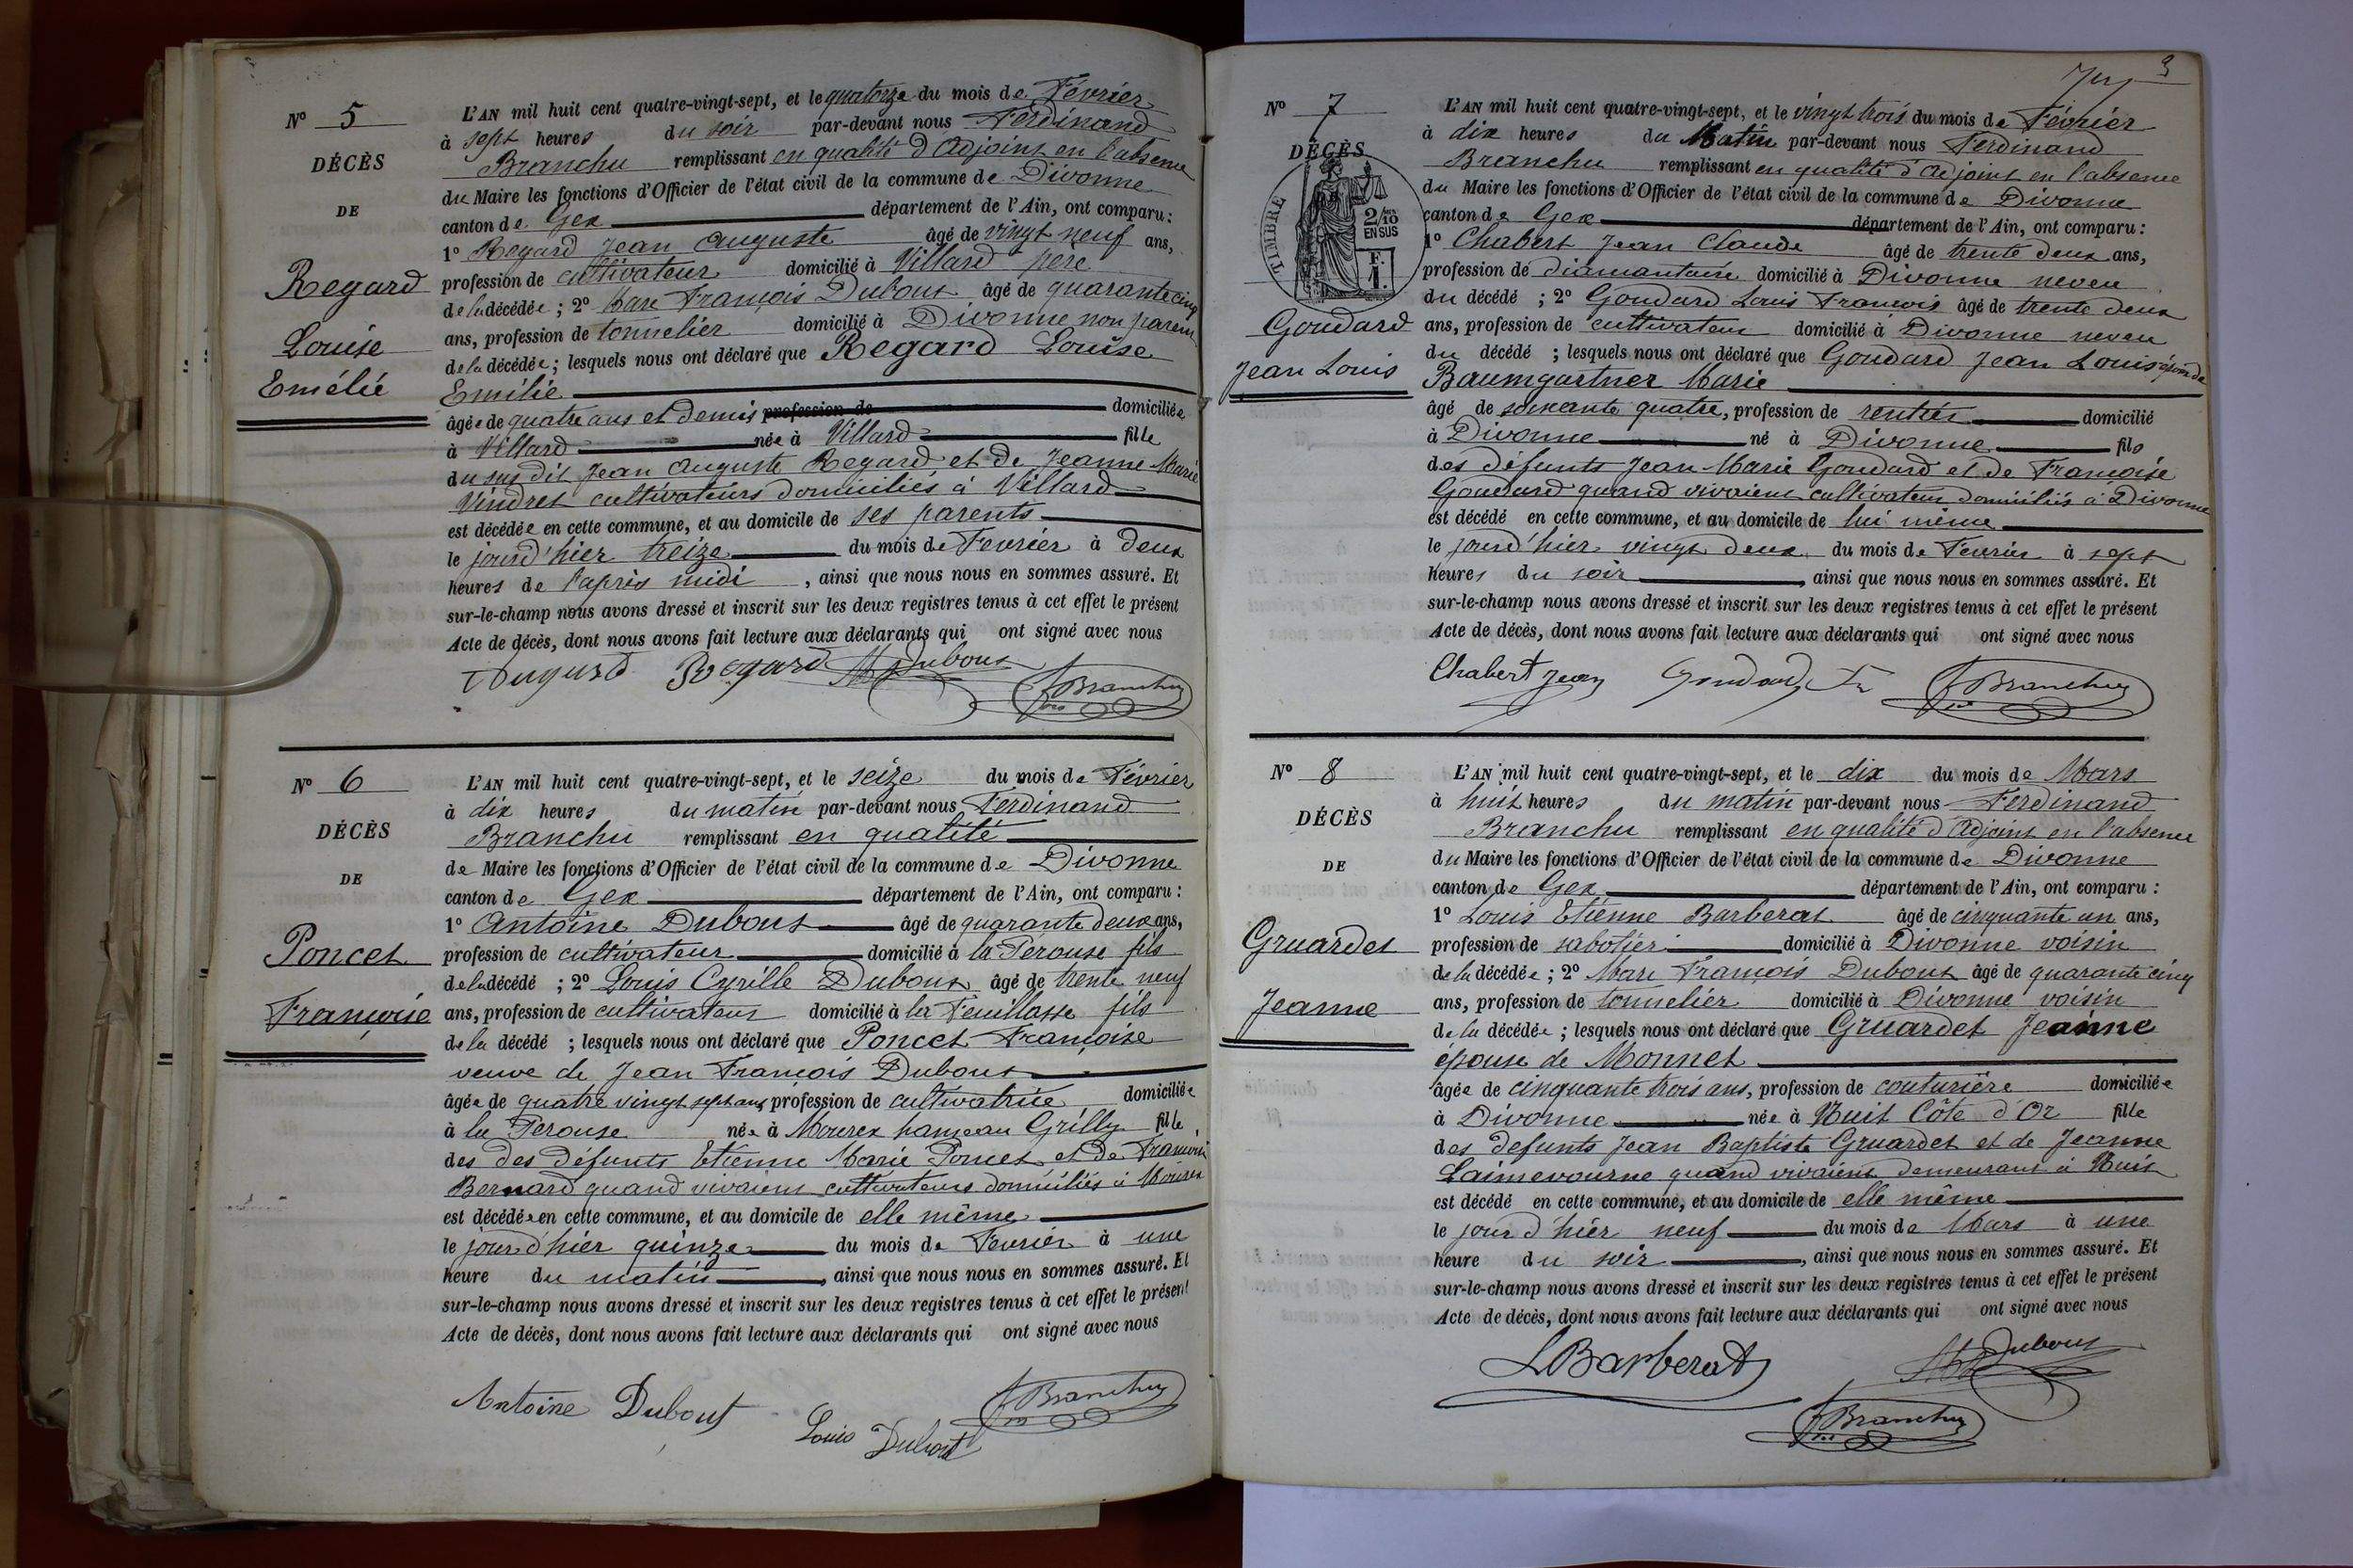 Nº 5
DÉCÈS
DE
Regard
Louise
Emélie
L'AN mil huit cent quatre-vingt-sept, et le quatorze du mois de Février
à sept heures du soir par-devant nous Ferdinand
Branchu remplissant en qualité d'Adjoint en l'absence
du Maire les fonctions d'Officier de l'état civil de la commune de Divonne
canton de Gex département de l'Ain, ont comparu :
1º Regard Jean Auguste âgé de vingt neuf ans,
profession de cultivateur domicilié à Villard père
de la décédée ; 2º Marc François Dubout âgé de quarante cinq
ans, profession de tonnelier domicilié à Divonne non parent
de la décédée ; lesquels nous ont déclaré que Regard Louise
Emilie
âgée de quatre ans et demis profession de domiciliée
à Villard née à Villard fille
du sus dit Jean Auguste Regard et de Jeanne Marie
Vindret cultivateurs domiciliés à Villard
est décédée en cette commune, et au domicile de ses parents
le jourd'hier treize du mois de Fevrier à deux
heures de l'après midi , ainsi que nous nous en sommes assuré. Et
sur-le-champ nous avons dressé et inscrit sur les deux registres tenus à cet effet le présent
Acte de décès, dont nous avons fait lecture aux déclarants qui ont signé avec nous
Regard Dubout
Branchu
Nº 6
DÉCÈS
DE
Poncet
Françoise
L'AN mil huit cent quatre-vingt-sept, et le seize du mois de Février
à dix heures du matin par-devant nous Ferdinand
Branchu remplissant en qualité
de Maire les fonctions d'Officier de l'état civil de la commune de Divonne
canton de Gex département de l'Ain, ont comparu :
1º Antoine Dubout âgé de quarante deux ans,
profession de cultivateur domicilié à la Perouse fils
de la décédé ; 2º Louis Cyrille Dubout âgé de trente neuf
ans, profession de cultivateur domicilié à la Feuillasse fils
de la décédé ; lesquels nous ont déclaré que Poncet Françoise
veuve de Jean François Dubout
âgée de quatre vingt sept ans, profession de cultivatrice domiciliée
à la Perouse née à Mourex hameau Grilly fille
des des défunts Etienne Marie Poncet et de Françoise
Bernard quand vivaient cultivateurs domiciliés à Mourex
est décédée en cette commune, et au domicile de elle même
le jourd'hier quinze du mois de Fevrier à une
heure du matin , ainsi que nous nous en sommes assuré. Et
sur-le-champ nous avons dressé et inscrit sur les deux registres tenus à cet effet le présent
Acte de décès, dont nous avons fait lecture aux déclarants qui ont signé avec nous
Antoine Dubout
Louis Dubout
Branchu
3
Nº 7
DÉCÈS
TIMBRE
2/10
EN SUS
F. 1.
Goudard
Jean Louis
L'AN mil huit cent quatre-vingt-sept, et le vingt trois du mois de Février
à dix heures du Matin par-devant nous Ferdinand
Branchu remplissant en qualité d'Adjoint en l'absence
du Maire les fonctions d'Officier de l'état civil de la commune de Divonne
canton de Gex département de l'Ain, ont comparu :
1º Chabert Jean Claude âgé de trente deux ans,
profession de diamantaire domicilié à Divonne neveu
du décédé ; 2º Goudard Louis François âgé de trente deux
ans, profession de cultivateur domicilié à Divonne neveu
du décédé ; lesquels nous ont déclaré que Goudard Jean Louis époux de
Baumgartner Marie
âgé de soixante quatre, profession de rentier domicilié
à Divonne né à Divonne fils
des défunts Jean Marie Goudard et de Françoise
Goudard quand vivaient cultivateurs domiciliés à Divonne
est décédé en cette commune, et au domicile de lui même
le jourd'hier vingt deux du mois de Fevrier à sept
heures du soir , ainsi que nous nous en sommes assuré. Et
sur-le-champ nous avons dressé et inscrit sur les deux registres tenus à cet effet le présent
Acte de décès, dont nous avons fait lecture aux déclarants qui ont signé avec nous
Chabert Jean Goudard Branchu
Nº 8
DÉCÈS
DE
Gruardet
Jeanne
L'AN mil huit cent quatre-vingt-sept, et le dix du mois de Mars
à huit heures du matin par-devant nous Ferdinand
Branchu remplissant en qualité d'Adjoint en l'absence
du Maire les fonctions d'Officier de l'état civil de la commune de Divonne
canton de Gex département de l'Ain, ont comparu :
1º Louis Etienne Barberat âgé de cinquante un ans,
profession de sabotier domicilié à Divonne voisin
de la décédée ; 2º Marc François Dubout âgé de quarante cinq
ans, profession de tonnelier domicilié à Divonne voisin
de la décédée ; lesquels nous ont déclaré que Gruardet Jeanne
épouse de Monnet
âgée de cinquante trois ans, profession de couturière domiciliée
à Divonne née à Nuit Côte d'Or fille
des défunts Jean Baptiste Gruardet et de Jeanne
quand vivaient demeurant à Nuit
est décédé en cette commune, et au domicile de elle même
le jour d'hier neuf du mois de Mars à une
heure du soir , ainsi que nous nous en sommes assuré. Et
sur-le-champ nous avons dressé et inscrit sur les deux registres tenus à cet effet le présent
Acte de décès, dont nous avons fait lecture aux déclarants qui ont signé avec nous
LBarberat Dubout
Branchu